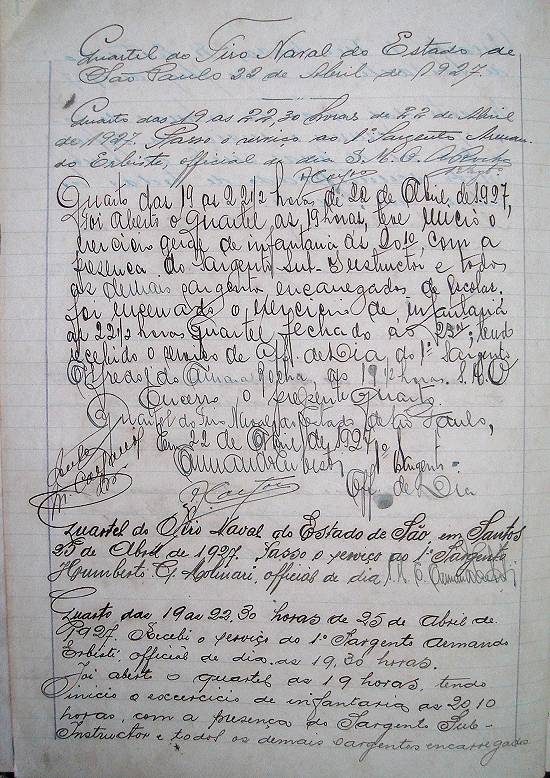 Quartel do Tiro Naval do Estado de
São Paulo 22 de Abril de 1927.
Quarto das 19 as 22,30 horas de 22 de Abril
de 1927. Passo o serviço ao 1º Sargento Arman
do Erbiste, official de dia S.M.O.
Quarto das 19 as 22 1/2 horas de 22 de Abril de 1927,
Foi aberto o Quartel as 19 horas, teve inicio o
exercicio geral de infantaria ás 20 10, com a
presença do Sargento Sub-Instructor e todos
os demais sargento encarregados de escolar.
Foi encerrado o exercicio de infantaria
as 22 1/2 horas Quartel fechado á 23 horas, tendo
recebido o serviço de Off. de Dia do 1º Sargento
Alfredo do Amaral Rocha, as 19 1/2 horas. S.M.O
Encerro o presente Quarto.
Quartel do Tiro Naval do Estado de São Paulo,
Em 22 de Abril de 1927
1º Sargento
Off. de Dia
Quartel do Tiro Naval do Estado de São, em Santos
25 de Abril de 1927. Passo o serviço ao 1º Sargento
Humberto G. Molinari, official de dia
Quarto das 19 as 22,30 horas de 25 de Abril de
1927. Recebi o serviço do 1º Sargento Armando
Erbisti, official de dia as 19,30 horas.
Foi abert o quartel as 19 horas, tendo
inicio o excercicio de infantaria as 20,10
horas, com a presença do Sargento Sub-
Instructor e todos os demais sargentos encarregados